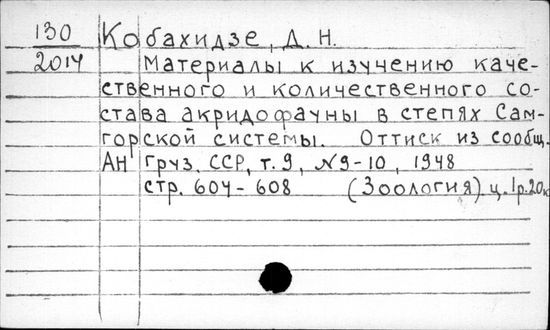 130 Кобахидзе, Д. Н.
2014 Материалы к изучению каче-
ственного и количественного со-
става акридофауны в степях Сам-
горской системы. Оттиск из сообщ.
АН Груз. ССР, т. 9, №9-10, 1948
стр. 604-608 (Зоология) ц. 1р.20к